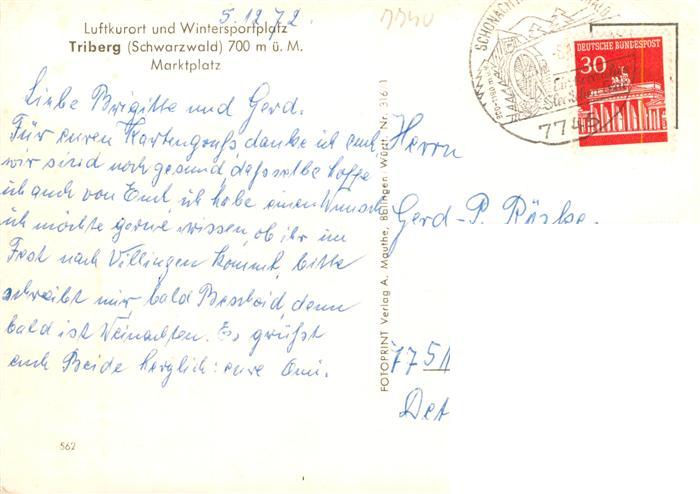 5.12.72.
7740
Luftkurort und Wintersportplatz
Triberg (Schwarzwald) 700 m ü. M.
Marktplatz
Liebe Brigitte und Gerd.
Für euren Kartengruß, danke ich euch,
wir sind noch gesund, daßselbe hoffe
ich auch von Euch, ich habe einen Wunsch
ich möchte gerne wissen, ob ihr im
Fest nach Villingen kommt, bitte
schreibt mir bald Bescheid, denn
bald ist Weinachten. Es grüßt
euch Beide herzlich: eure Omi.
562
FOTOPRINT Verlag A. Mauthe, Böblingen/Württ. Nr. 316/1
SCHONACH
774
DEUTSCHE BUNDESPOST
30
Herrn
Gerd-P.
775
Det